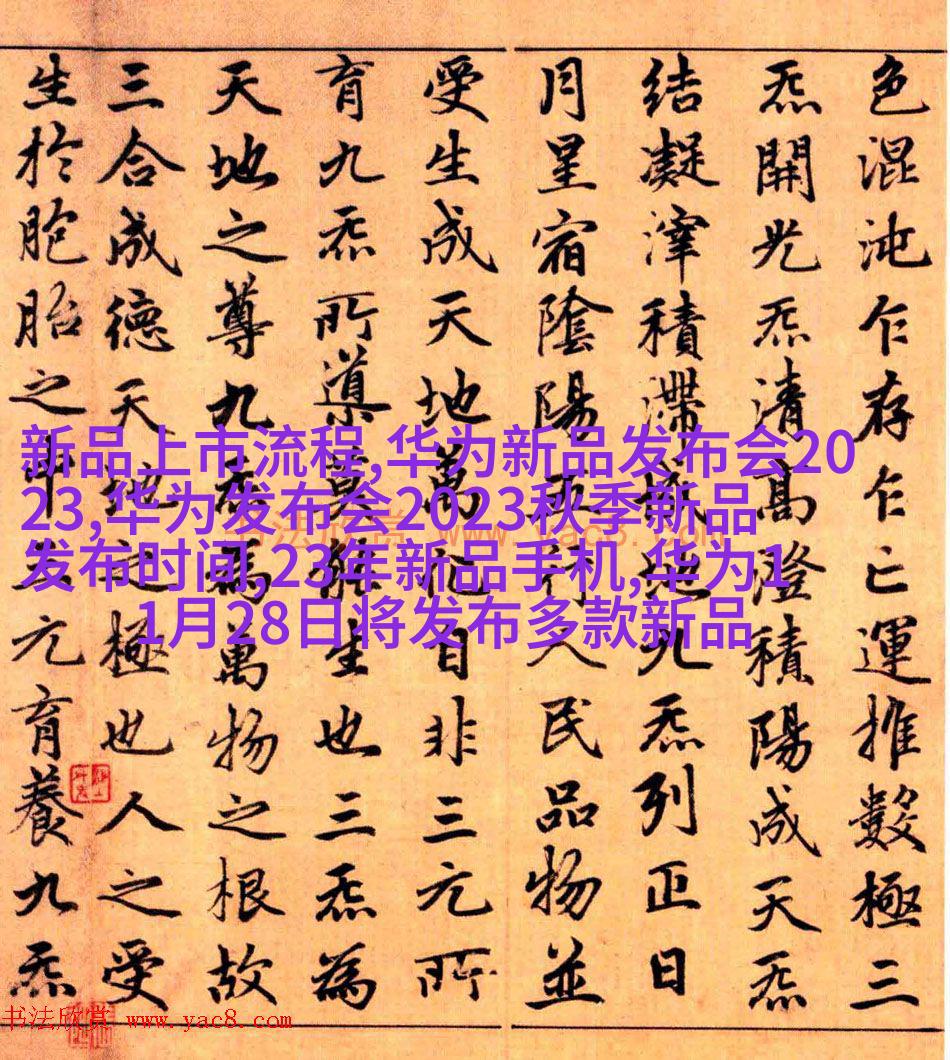 色混沌乍存乍亡運推數極三
炁開光炁清高澄積陽成天炁
結凝滓積滯成地九炁列正日
月星宿陰陽五行人民品物並
受生成天地萬化自非三元所
育九炁所導莫能生也三炁為
天地之尊九炁為萬物之根故
三合成德天地之極也人之受
生於胞胎之中三元育養九炁
新品上市流程,华为新品发布会20
23,华为发布会2023秋季新品
发布时间,23年新品手机,华为1
1月28日将发布多款新品
书法欣赏 www.yac8.com
书法欣赏 www.yac8.com